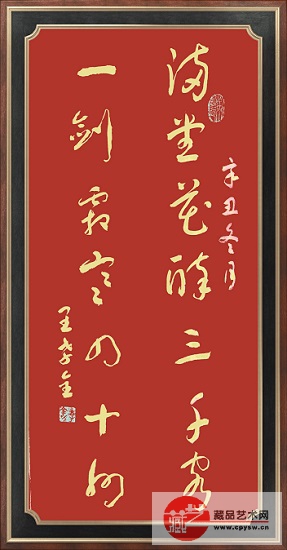 满堂花醉三千客
辛丑冬月
一剑霜寒四十州
藏品艺术网
www.cpysw.cn